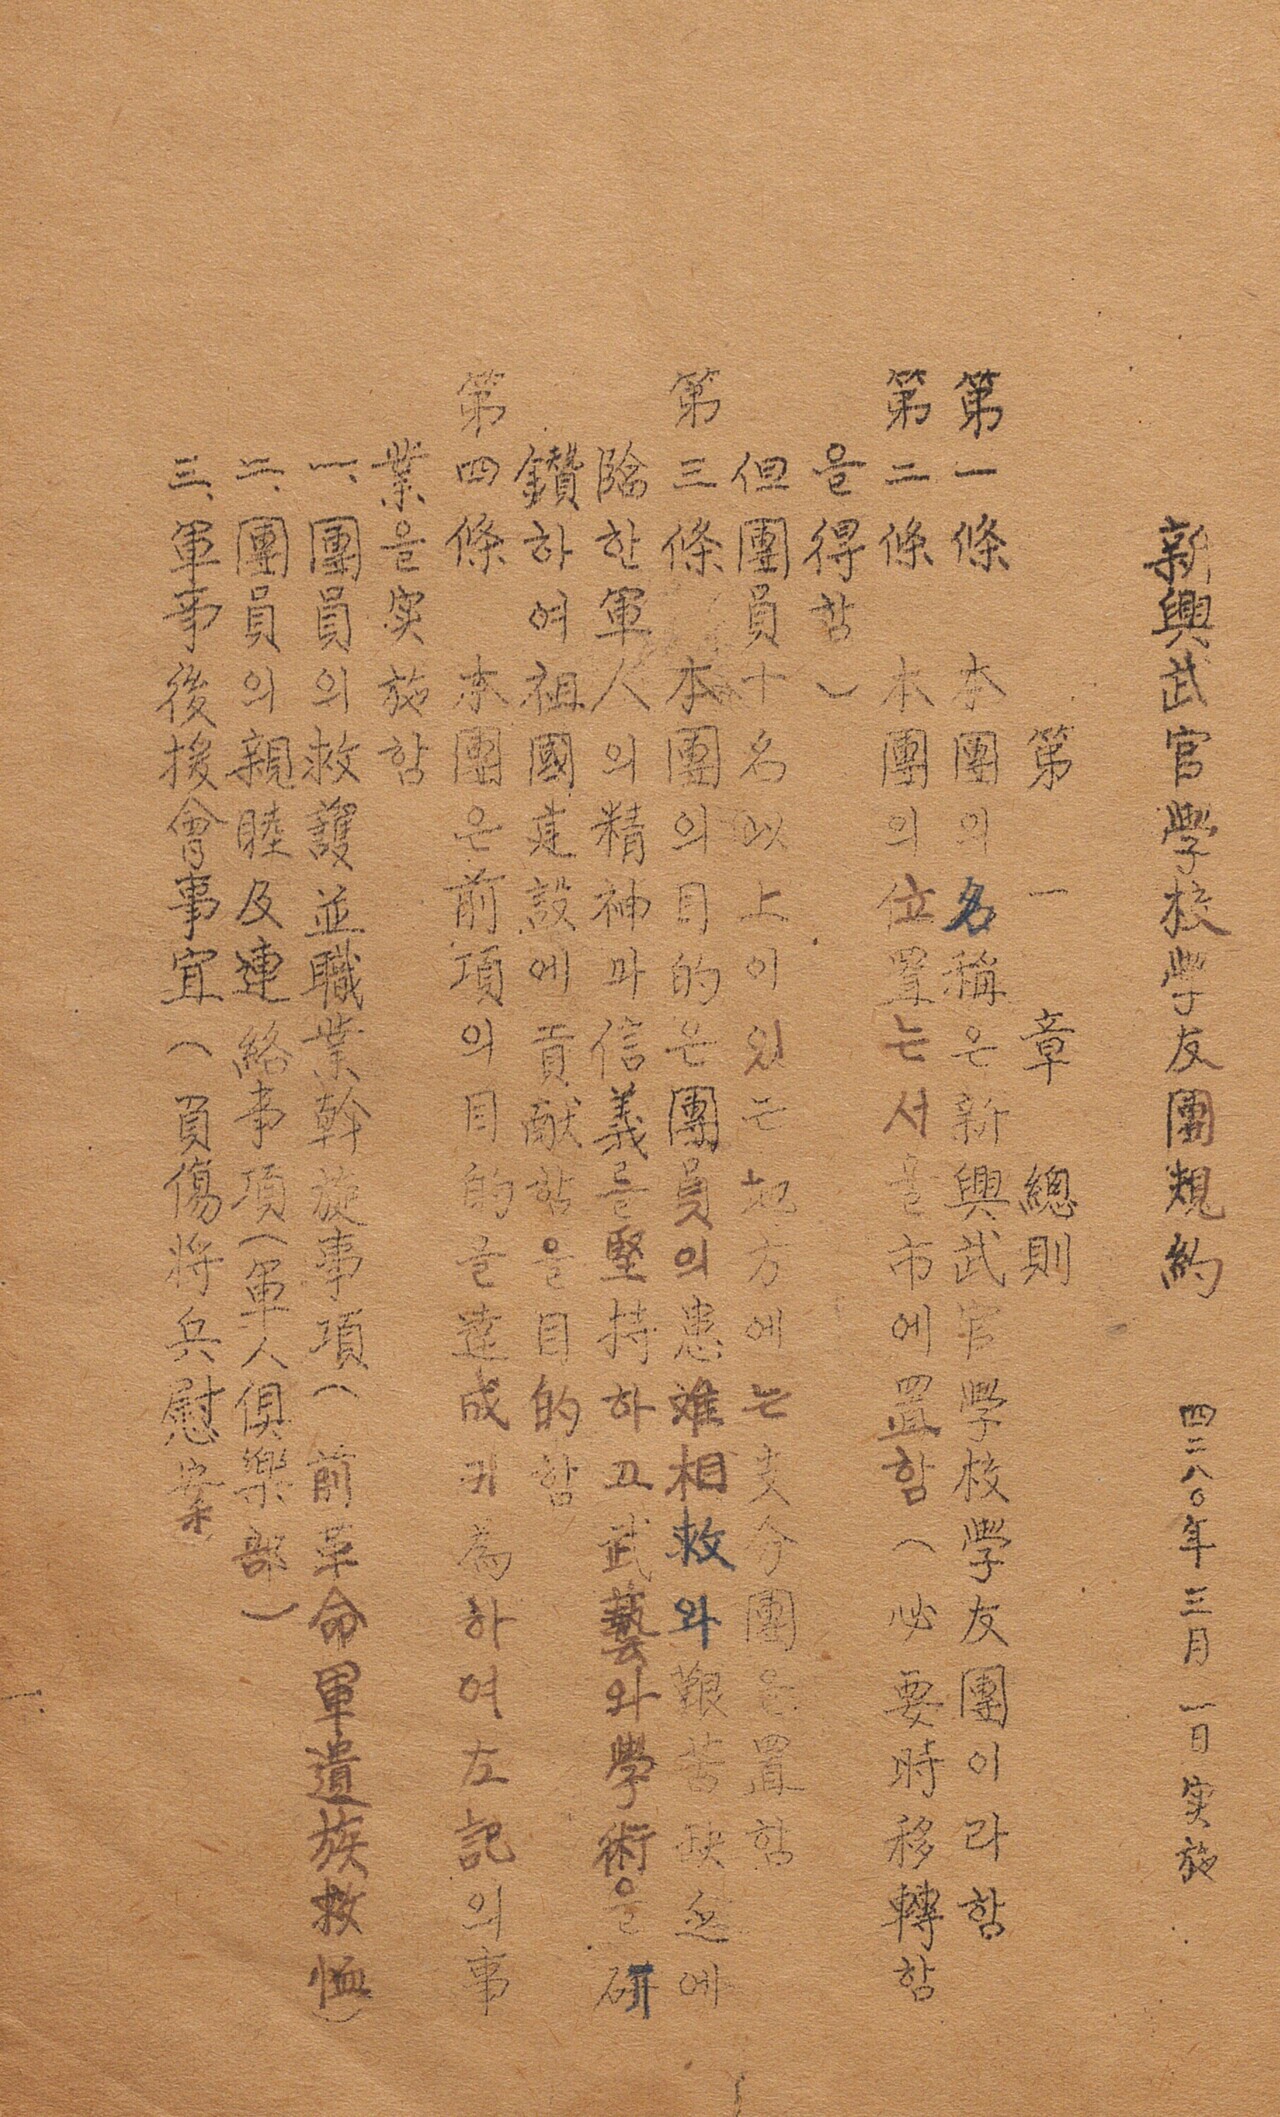 新興武官學校學友團規約 四二八〇年三月一日実施
第一章 總則
第一條 本團의名稱은新興武官學校學友團이라함
第二條 本團의位置는서울市에置함(必要時移轉함
을得함)
但團員十名以上이있는地方에는支分團을置함
第三條 本團의目的은團員의患难相救와艱苦缺乏에
陰한軍人의精神과信義를堅持하고武藝와學術을研
鑽하여祖國建設에貢献함을目的함
第四條 本團은前項의目的을達成키為하여左記의事
業을実施함
一、團員의救護並職業幹旋事項(前革命軍遺族救恤)
二、團員의親睦及連絡事項(軍人俱樂部)
三、軍事後援會事宜(負傷将兵慰案)
一